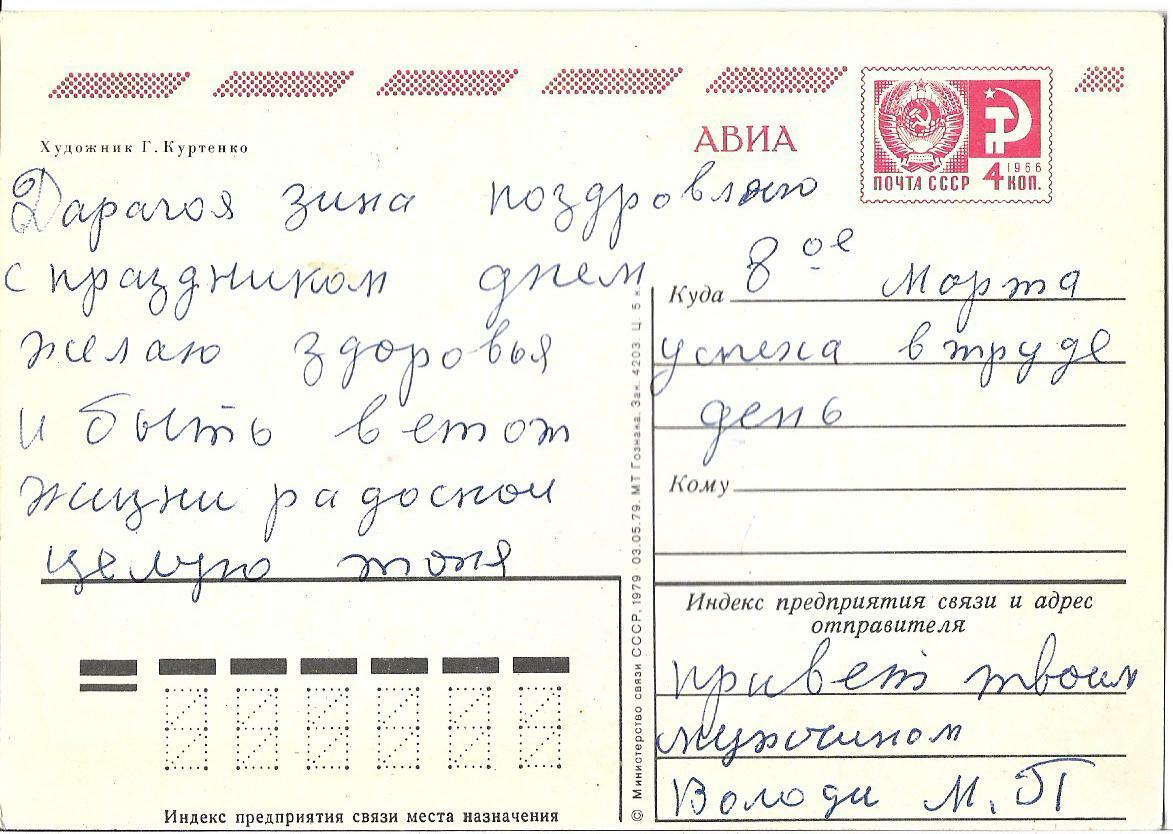 АВИА
ПОЧТА СССР 4 КОП. 1966
Художник Г. Куртенко
Дарагоя зина поздровляю
с праздником днем 8 ое Морта
желаю здоровья успеха в труде
и быть в етот день
жизни радоснои
целую тоня
Куда
Кому
Индекс предприятия связи и адрес
отправителя
привет твоим
мужчином
Володи М. П
© Министерство связи СССР, 1979 03.05.79. МТ Гознака. Зак. 4203. Ц. 5 к.
Индекс предприятия связи места назначения